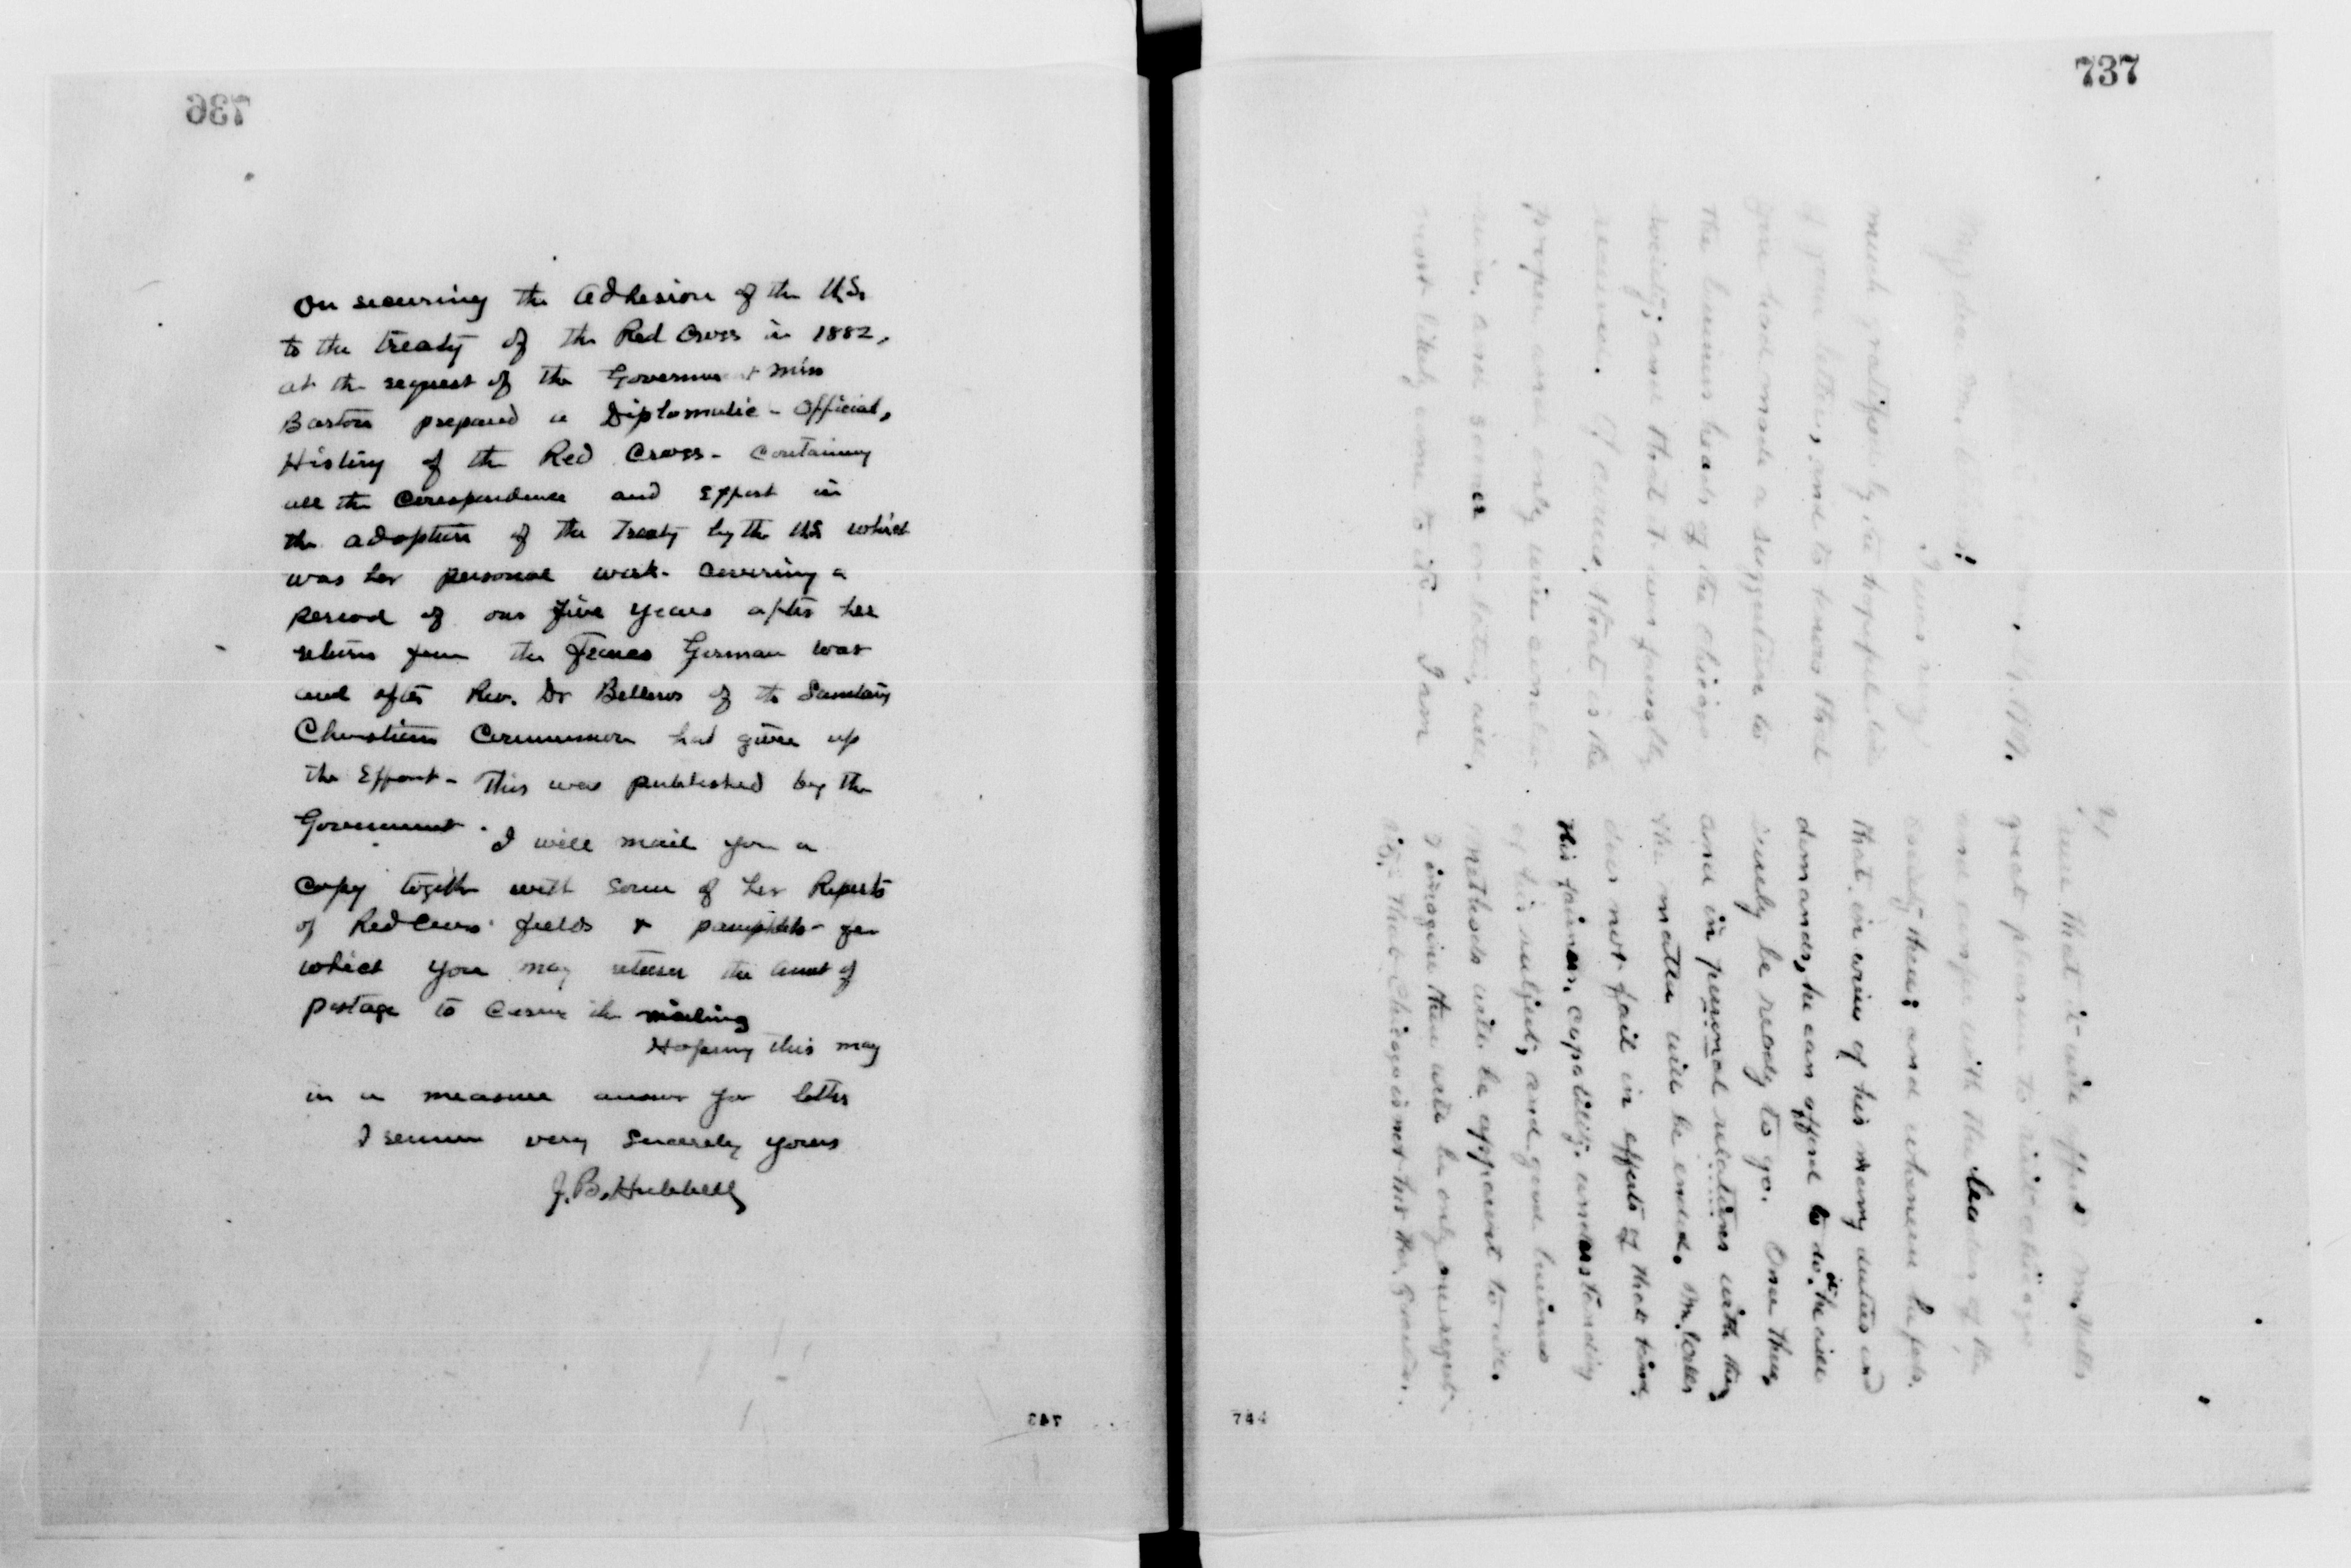 736
On securing the Adhesion of the U.S.
to the treaty of the Red Cross in 1882,
at the request of the Government Miss
Barton prepared a Diplomatic - Official,
History of the Red Cross - Containing
all the Correspondence and Effort in
the adoption of the Treaty by the U.S. which
was her personal work - covering a
period of over five years after her
return from the Franco German war
and after Rev. Dr Bellows of the Sanitary
Christian Commission had given up
the Effort - This was published by the
Government. I will mail you a
copy together with some of her Reports
of Red Cross fields & pamphlets - for
which you may return the amt of
postage to cover the mailing
Hoping this may
in a measure answer your letter
I remain very sincerely yours
J. B. Hubbell
743
737
My dear Mr.
I was very
much gratified by the hopeful
of your letter, and to know that
you had made a suggestion to
the business heads of the Chicago
society; and that it was favorably
received. Of course, that is the
proper and only wise
and sooner or later, will,
most likely come to it. I am
2/
sure that it will afford Mr.
great pleasure to visit Chicago
and confer with the leaders of the
society there; and whenever he feels
that in view of his many duties and
demands, he can afford to do it he will
surely be ready to go. Once there
and in personal relations with them
the matter will be ended. Mr.
does not fail in efforts of that kind.
His fairness, capability, understanding
of his subject, and good business
methods will be apparent to all.
I imagine there will be only one regret
744